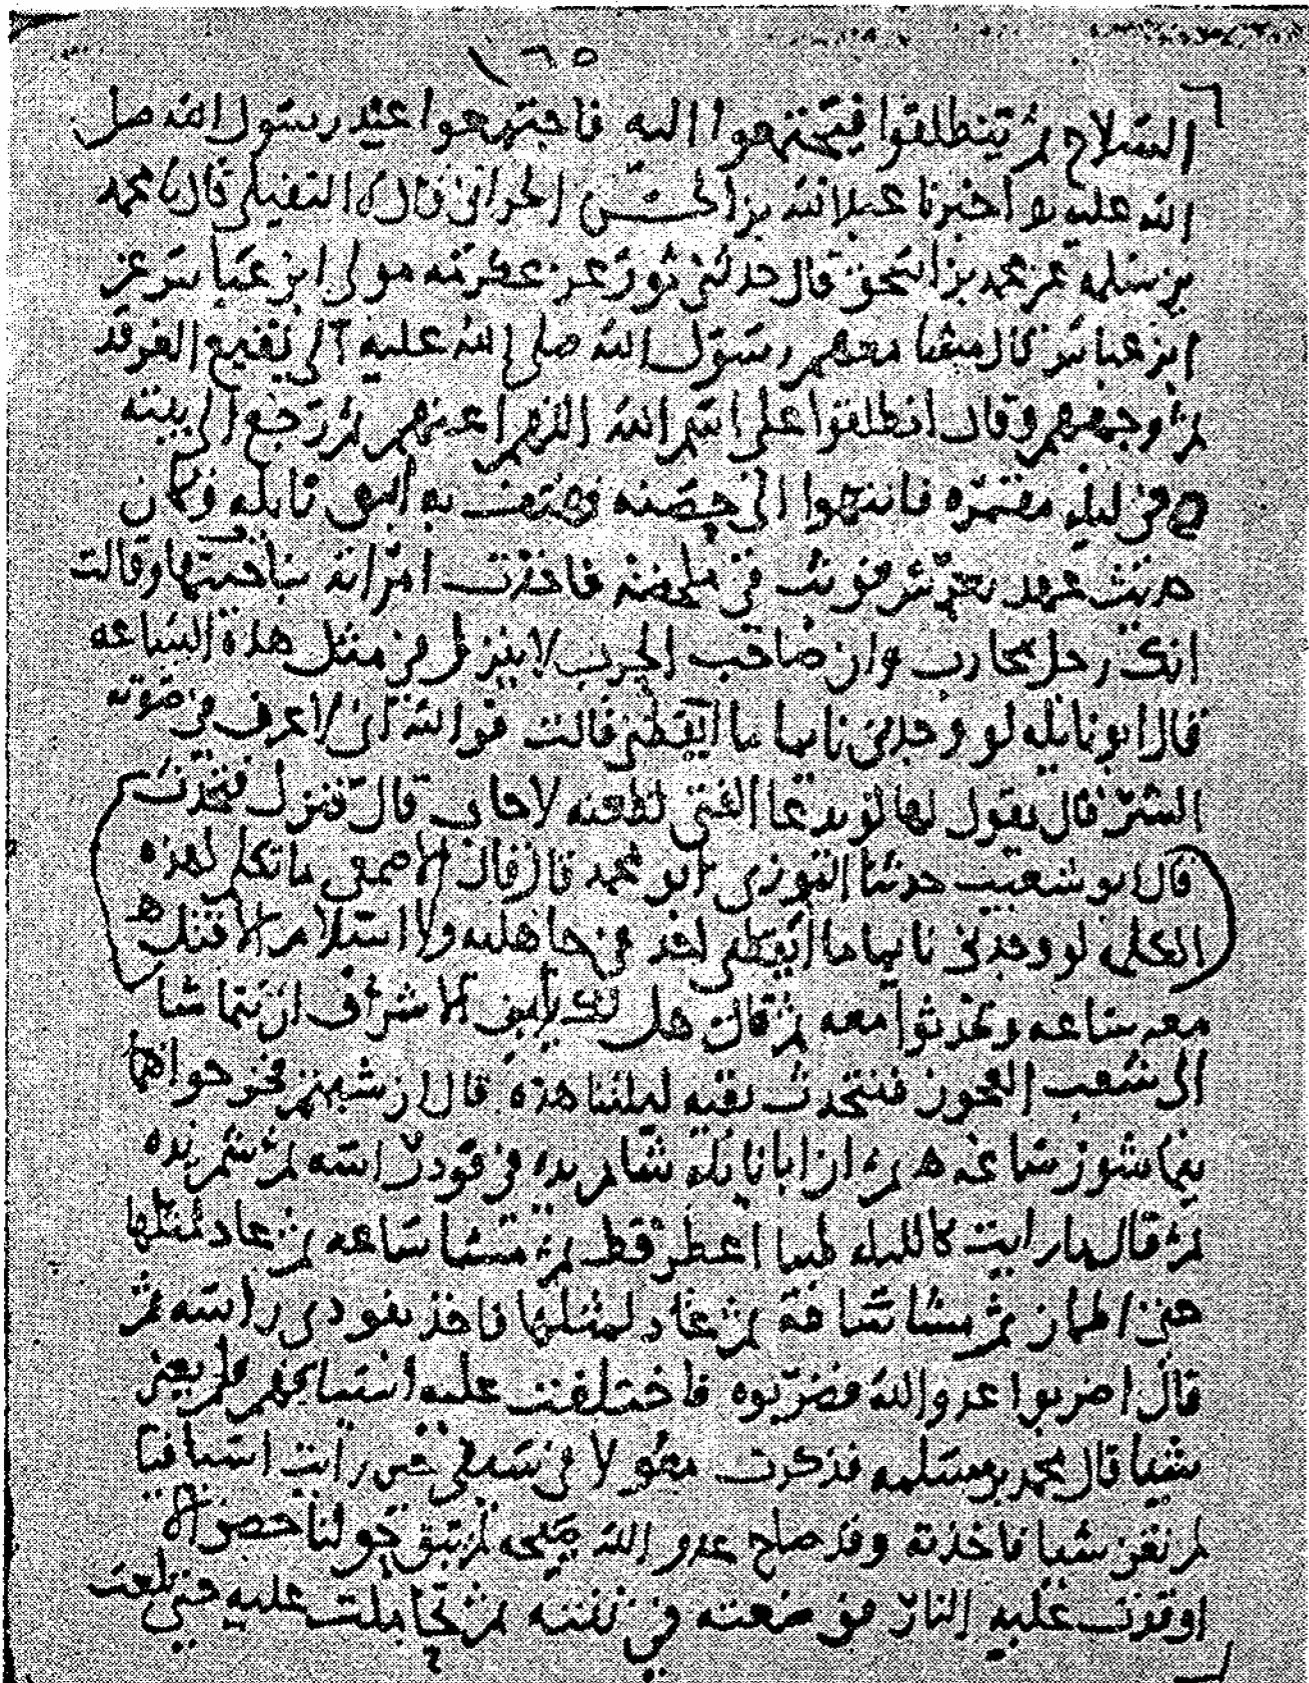 ١٦٥
السلاح ثم ينطلقوا فيجتمعوا اليه فاجتمعوا عند رسول الله صلى
الله عليه اخبرنا عبد الله بن الحسن الحراني قال نا النفيلي قال نا محمد
بن سلمه عن محمد بن اسحق قال حدثني ثور عن عكرمه مولى ابن عباس عن
ابن عباس قال مشا معهم رسول الله صلى الله عليه الى بقيع الغرقد
ثم وجههم وقال انطلقوا على اسم الله اللهم اعنهم ثم رجع الى بيته
في ليله مقمره فانتهوا الى حصنه فهتف به ابو نايله وكان
حديث عهد بعرس فوثب في ملحفته فاخذت امرأته بناحيتها وقالت
انك رجل محارب وان صاحب الحرب لا ينزل في مثل هذه الساعه
قال ابو نايله لو وجدني نايما ما ايقظني قالت فوالله اني لاعرف في صوته
الشر قال يقول لها لو يدعا الفتى لطعنه لاجاب قال فنزل فتحدث
قال ابو شعيب حدثنا التوزي ابو محمد قال قال الاصمعي ما تكلم بهذه
الكلمه لو وجدني نايما ما ايقظني احد في جاهليه ولا اسلام الا قتل
معه ساعه وتحدثوا معه ثم قال هل لك يابن الاشرف ان نتماشا
الى شعب العجوز فنتحدث بقيه ليلتنا هذه قال ان شيتم فخرجوا
يتماشون ساعه ثم ان ابا نايله شام يده في فود راسه ثم شم يده
ثم قال ما رايت كالليله طيبا اعطر قط ثم مشا ساعه ثم عاد لمثلها
حتى اطمان ثم مشا ساعه ثم عاد لمثلها فاخذ بفودي راسه ثم
قال اضربوا عدو الله فضربوه فاختلفت عليه اسيافهم فلم يغن
شيا قال محمد بن مسلمه فذكرت مغولا في سيفي حين رايت اسيافنا
لم تغن شيا فاخذته وقد صاح عدو الله صيحه لم يبق حولنا حصن الا
اوقدت عليه النار فوضعته في ثنته ثم تحاملت عليه حتى بلغت